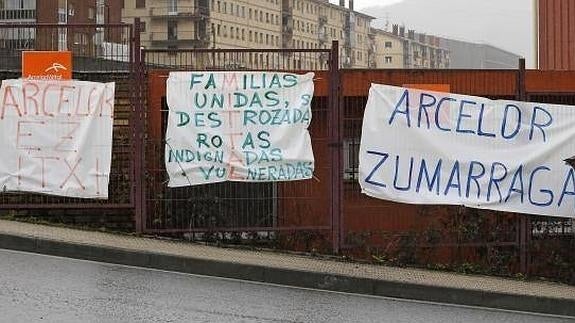 ArcelorMittal
ARCELOR
EZ
ITXI
FAMILIAS
UNIDAS, S
DESTROZADA
ROTAS
INDIGNADAS
VULNERADAS
ARCELOR
ZUMARRAGA